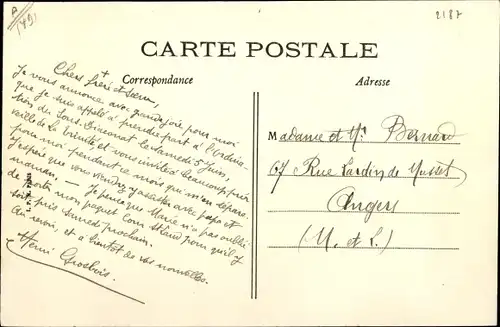 A
(49)
2187
CARTE POSTALE
Correspondance
Adresse
Chers frère et sœur,
Je vous annonce avec grande joie pour moi
que je suis appelé à prendre part à l'Ordina-
tion du Sous-Diaconat le samedi 5 Juin,
veille de la Trinité et vous invite à beaucoup prier
pour moi pendant ce mois qui m'en sépare.
J'espère que vous viendrez y assister avec papa et
maman. — Je pense que Marie n'a pas oublié
de porter mon paquet pour qu'il y
soit pris samedi prochain.
Au revoir, et à bientôt de vos nouvelles.
Henri Grosbois.
Madame et Mr Bernard
67 Rue Jardin de Musset
Angers
(M. et L.)